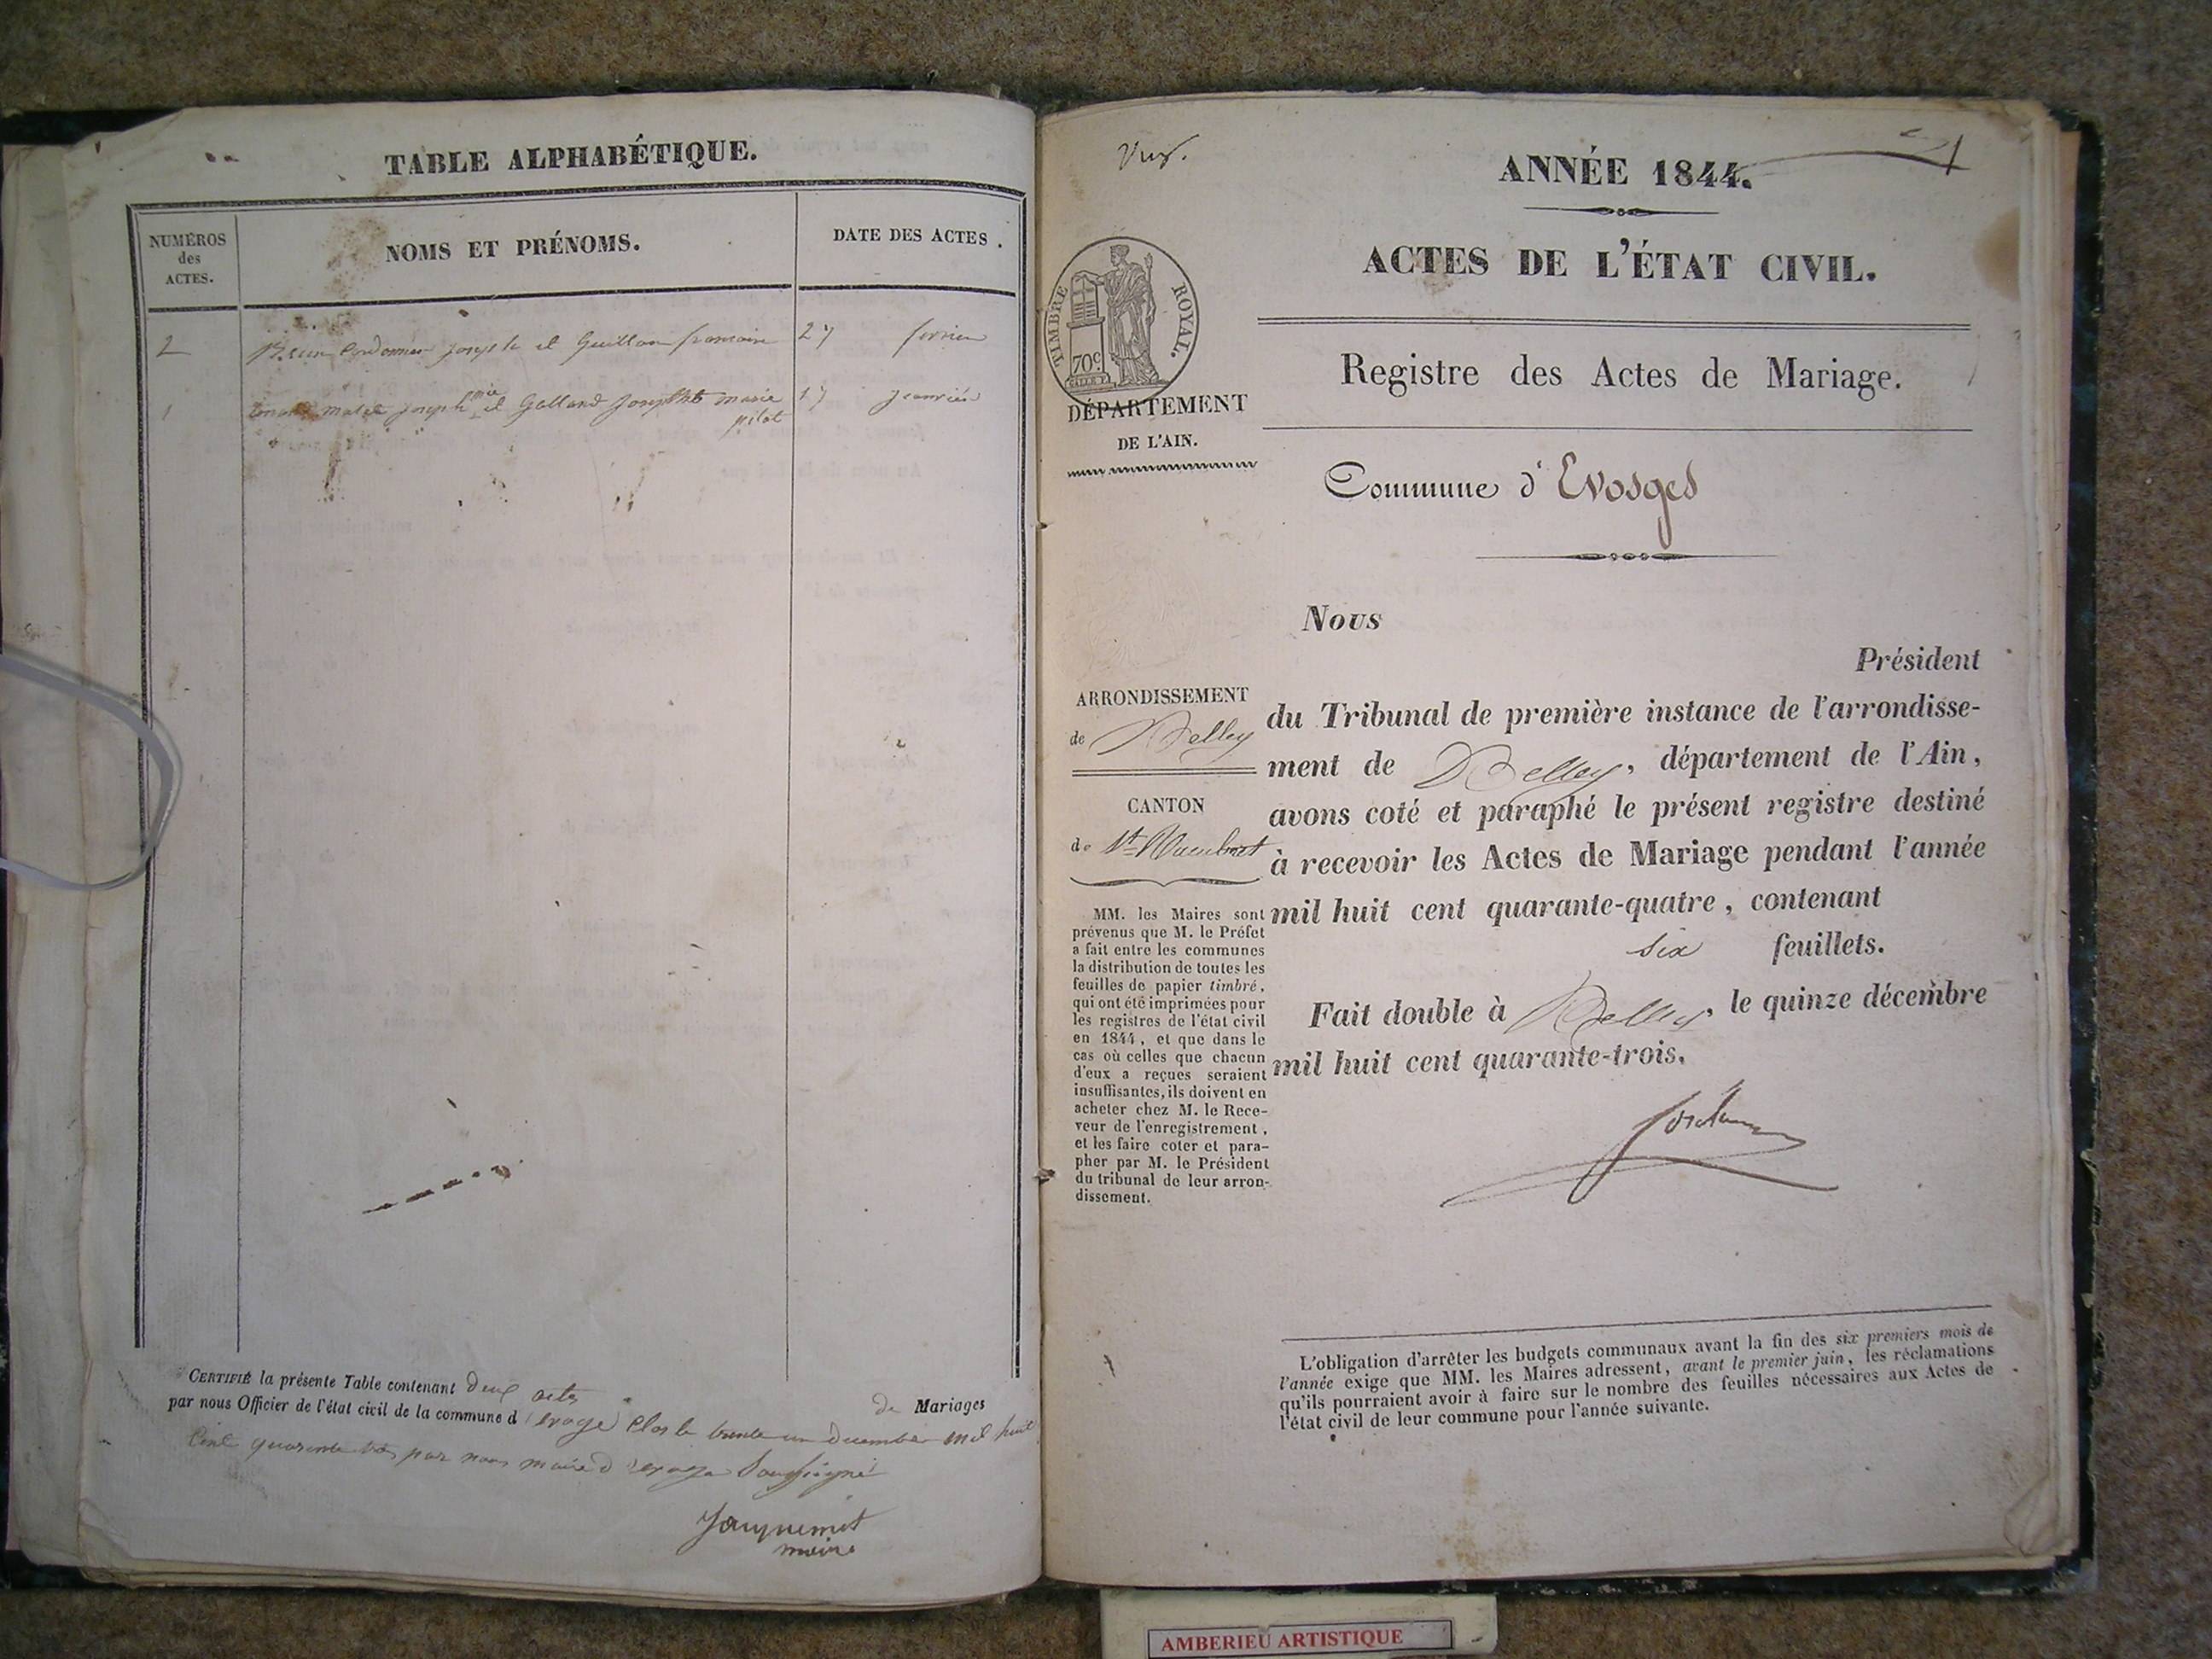 TABLE ALPHABÉTIQUE.
NUMÉROS
des
ACTES.
NOMS ET PRÉNOMS.
DATE DES ACTES.
2 joseph et Guillon 27 fevrier
1 joseph et Galland josephte marie 17 janvier
pilot
CERTIFIÉ la présente Table contenant deux actes de Mariages
par nous Officier de l'état civil de la commune d'evoge Clos le trente un decembre mil huit
Cent quarente trois par nous maire d'evoge Soussigné
Jacquemet
maire
ANNÉE 1844.
ACTES DE L'ÉTAT CIVIL.
TIMBRE ROYAL.
70c.
Registre des Actes de Mariage.
DÉPARTEMENT
DE L'AIN.
Commune d'Evosges
Nous
Président
ARRONDISSEMENT
de Belley
CANTON
de St-Rambert
du Tribunal de première instance de l'arrondisse-
ment de Belley, département de l'Ain,
avons coté et paraphé le présent registre destiné
à recevoir les Actes de Mariage pendant l'année
mil huit cent quarante-quatre, contenant
six feuillets.
Fait double à Belley, le quinze décembre
mil huit cent quarante-trois.
MM. les Maires sont
prévenus que M. le Préfet
a fait entre les communes
la distribution de toutes les
feuilles de papier timbré,
qui ont été imprimées pour
les registres de l'état civil
en 1844, et que dans le
cas où celles que chacun
d'eux a reçues seraient
insuffisantes, ils doivent en
acheter chez M. le Rece-
veur de l'enregistrement,
et les faire coter et para-
pher par M. le Président
du tribunal de leur arron-
dissement.
L'obligation d'arrêter les budgets communaux avant la fin des six premiers mois de
l'année exige que MM. les Maires adressent, avant le premier juin, les réclamations
qu'ils pourraient avoir à faire sur le nombre des feuilles nécessaires aux Actes de
l'état civil de leur commune pour l'année suivante.
AMBERIEU ARTISTIQUE